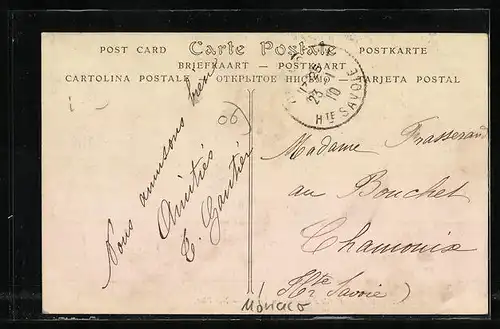 POST CARD Carte Postale POSTKARTE
BRIEFKAART — POSTKAART
CARTOLINA POSTALE — ОТКРЫТОЕ — TARJETA POSTAL
23 10
HTE SAVOIE
06
Nous amusons bien
Amitiés
E. Gautier
Madame Frasserand
au Bouchet
Chamonix
Hte Savoie)
Monaco